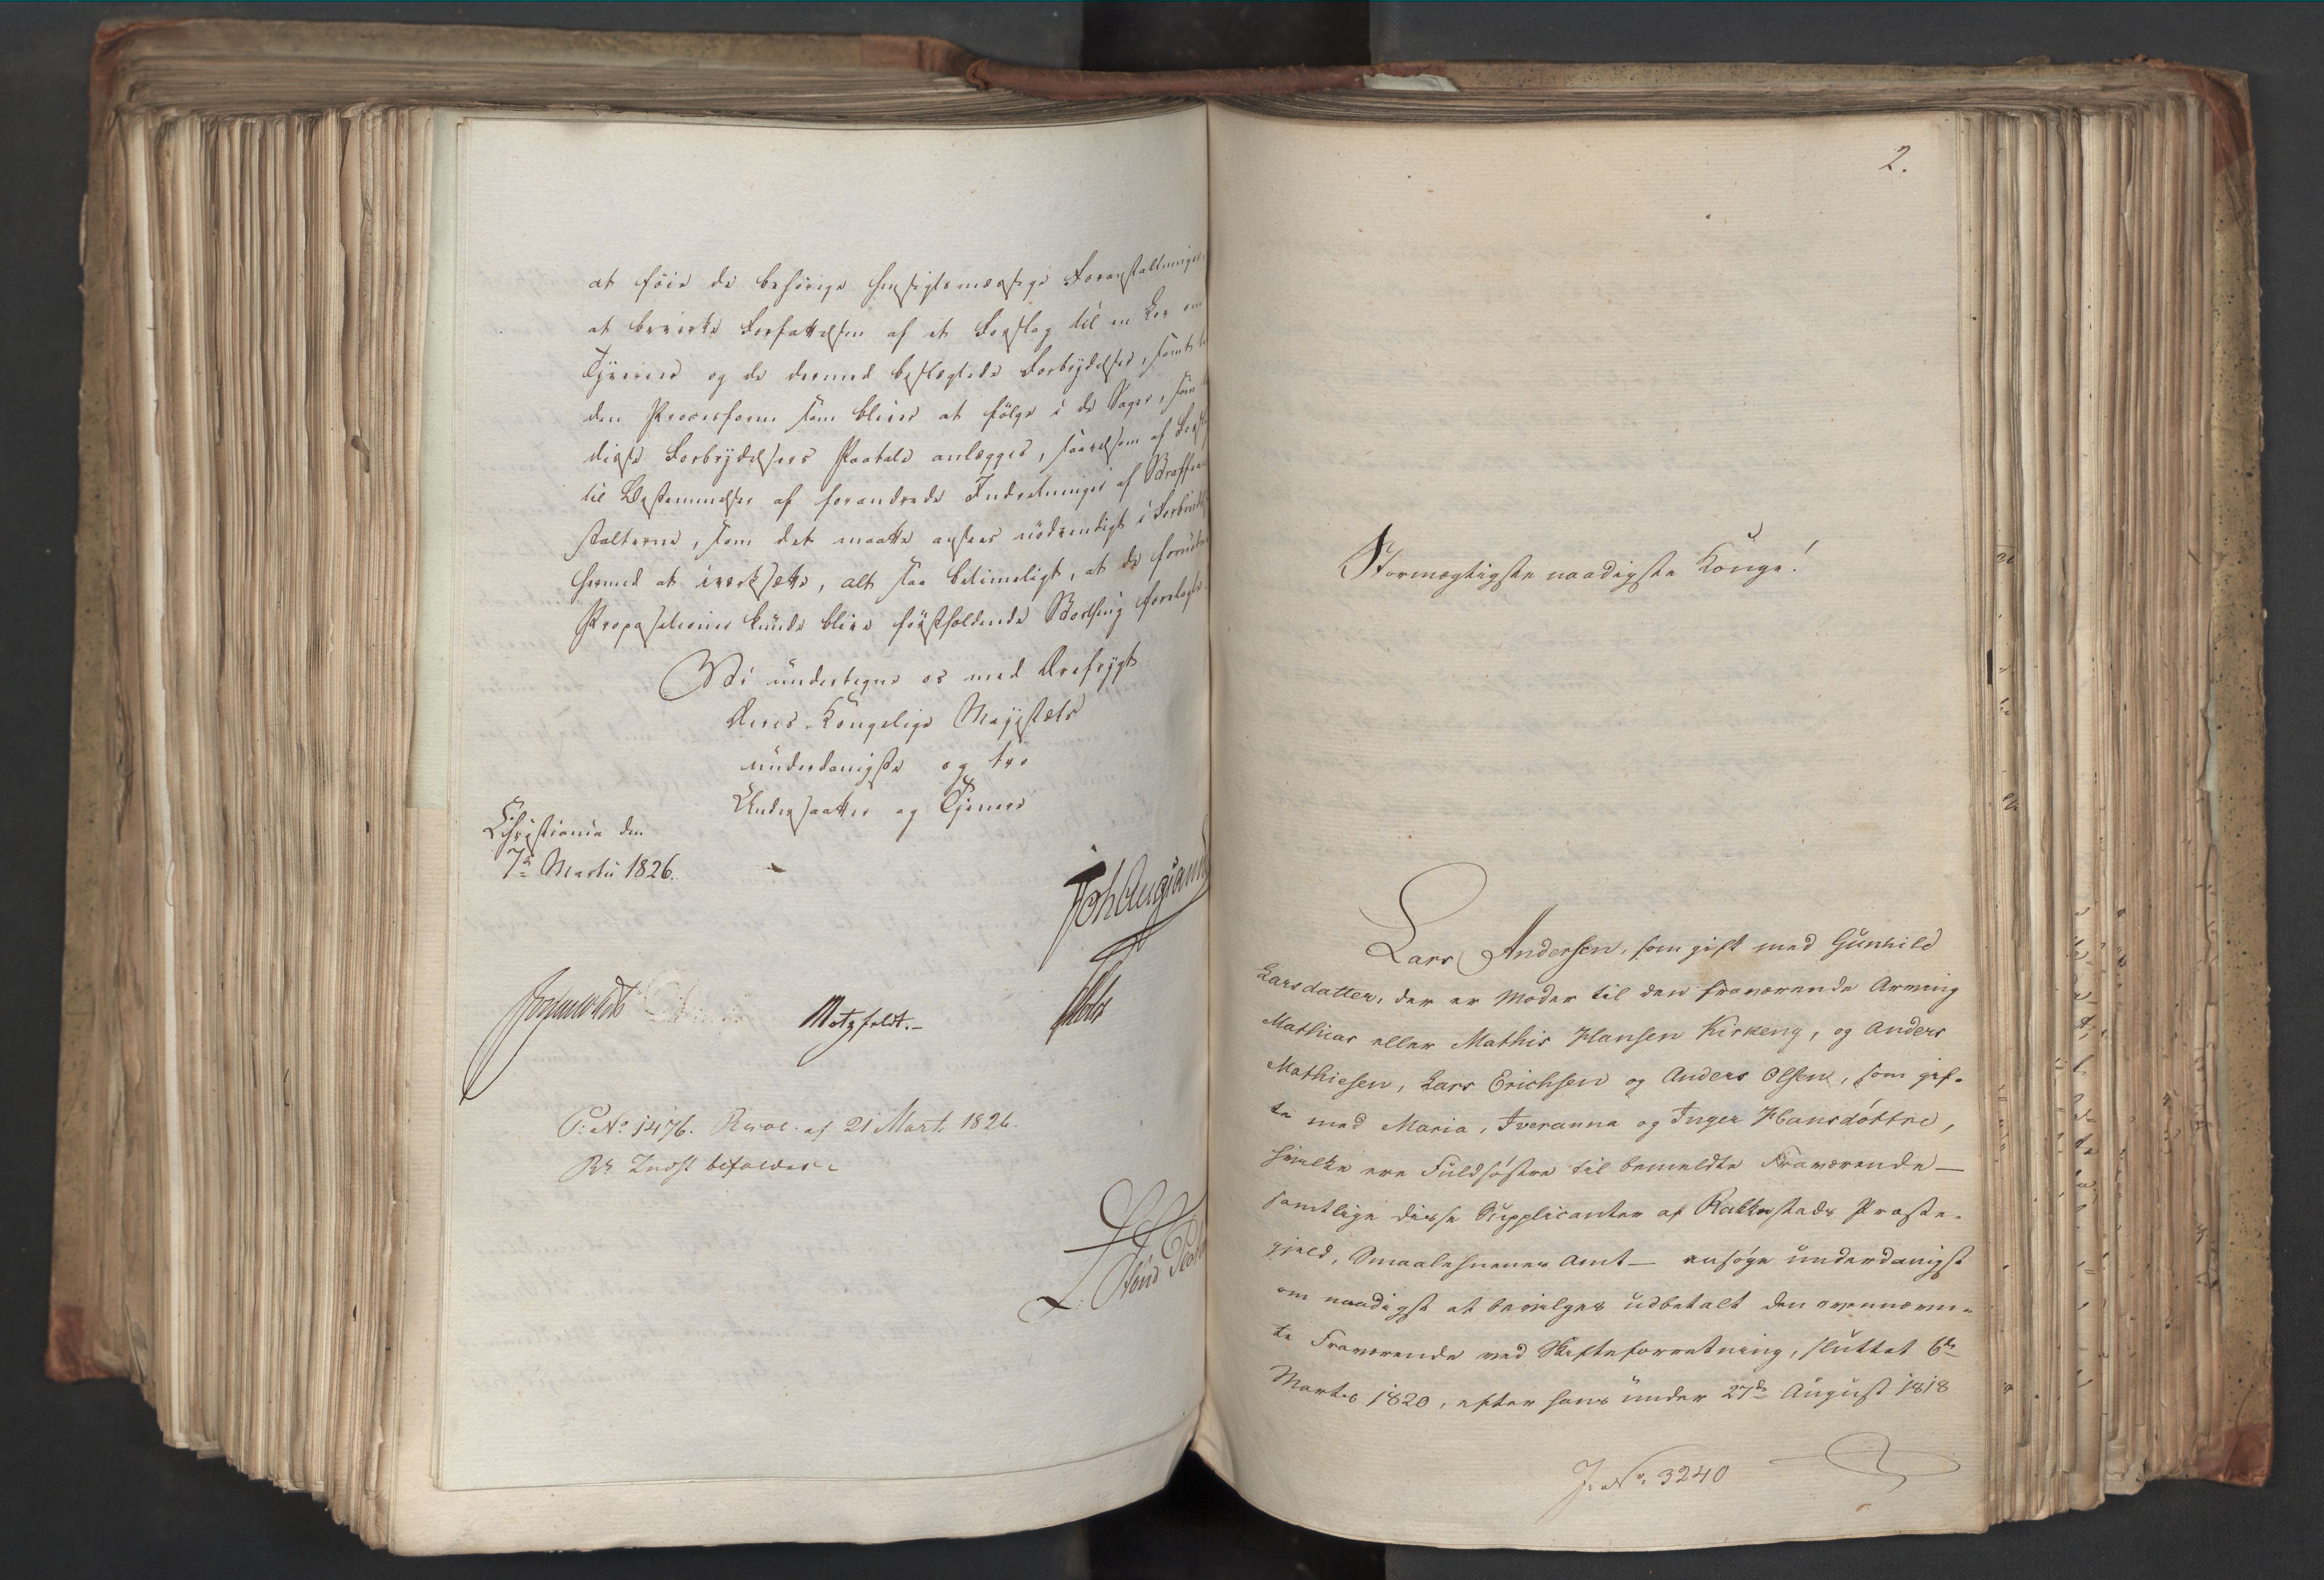 at föie de behörige hensigtsmæssige Foranstaltninger
at bevirke Forfattelsen af et Forslag til en Lov om
Tyverie og de dermed beslægtede Forbrydelser, samt
den Procesform som bliver at følge i de Sager, som
disse Forbrydelsers Paatale anlægges, saavelsom af Forslag
til Bestemmelser af forandrede Indretninger af Straffean
stalterne, som det maatte ansees nödvendigt i Forbindelse
hermed at iverksætte, alt saa betimeligt, at de fornødne
Propositioner kunde blive förstholdende Storthing forelagte.
Vi undertegne os med Ærefrygt
Deres Kongelige Majestæts
underdanigste og tro
Undersaatter og Tjenere
Christiania den
7de Martii 1826.
Motzfeldt.
P. No 1476. Resol. af 21 Mart. 1826.
R: Indst bifaldes.
2.
Stormægtigste naadigste Konge!
Lars Andersen, som gift med Gunhild
Larsdatter, der er Moder til den fraværende Arving
Mathias eller Mathis Hansen Kirkeng, og Anders
Mathiesen, Lars Erichsen og Anders Olsen, som gif-
te med Maria, Iveranna og Inger Hansdöttre,
hvilke ere Fuldsöstre til bemeldte Fraværende —
samtlige disse Supplicanter af Rakkestads Præste-
gjeld, Smaalehnenes Amt — ansöge underdanigst
om naadigst at bevilges udbetalt den ovennævn-
te Fraværende ved Skifteforretning, sluttet 6te
Marts 1820, efter hans under 27de August 1818
J. No. 3240